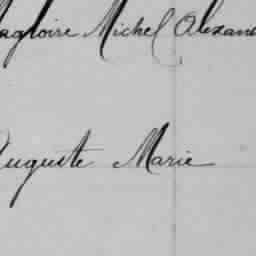 Magloire Michel Alexand
Auguste Marie